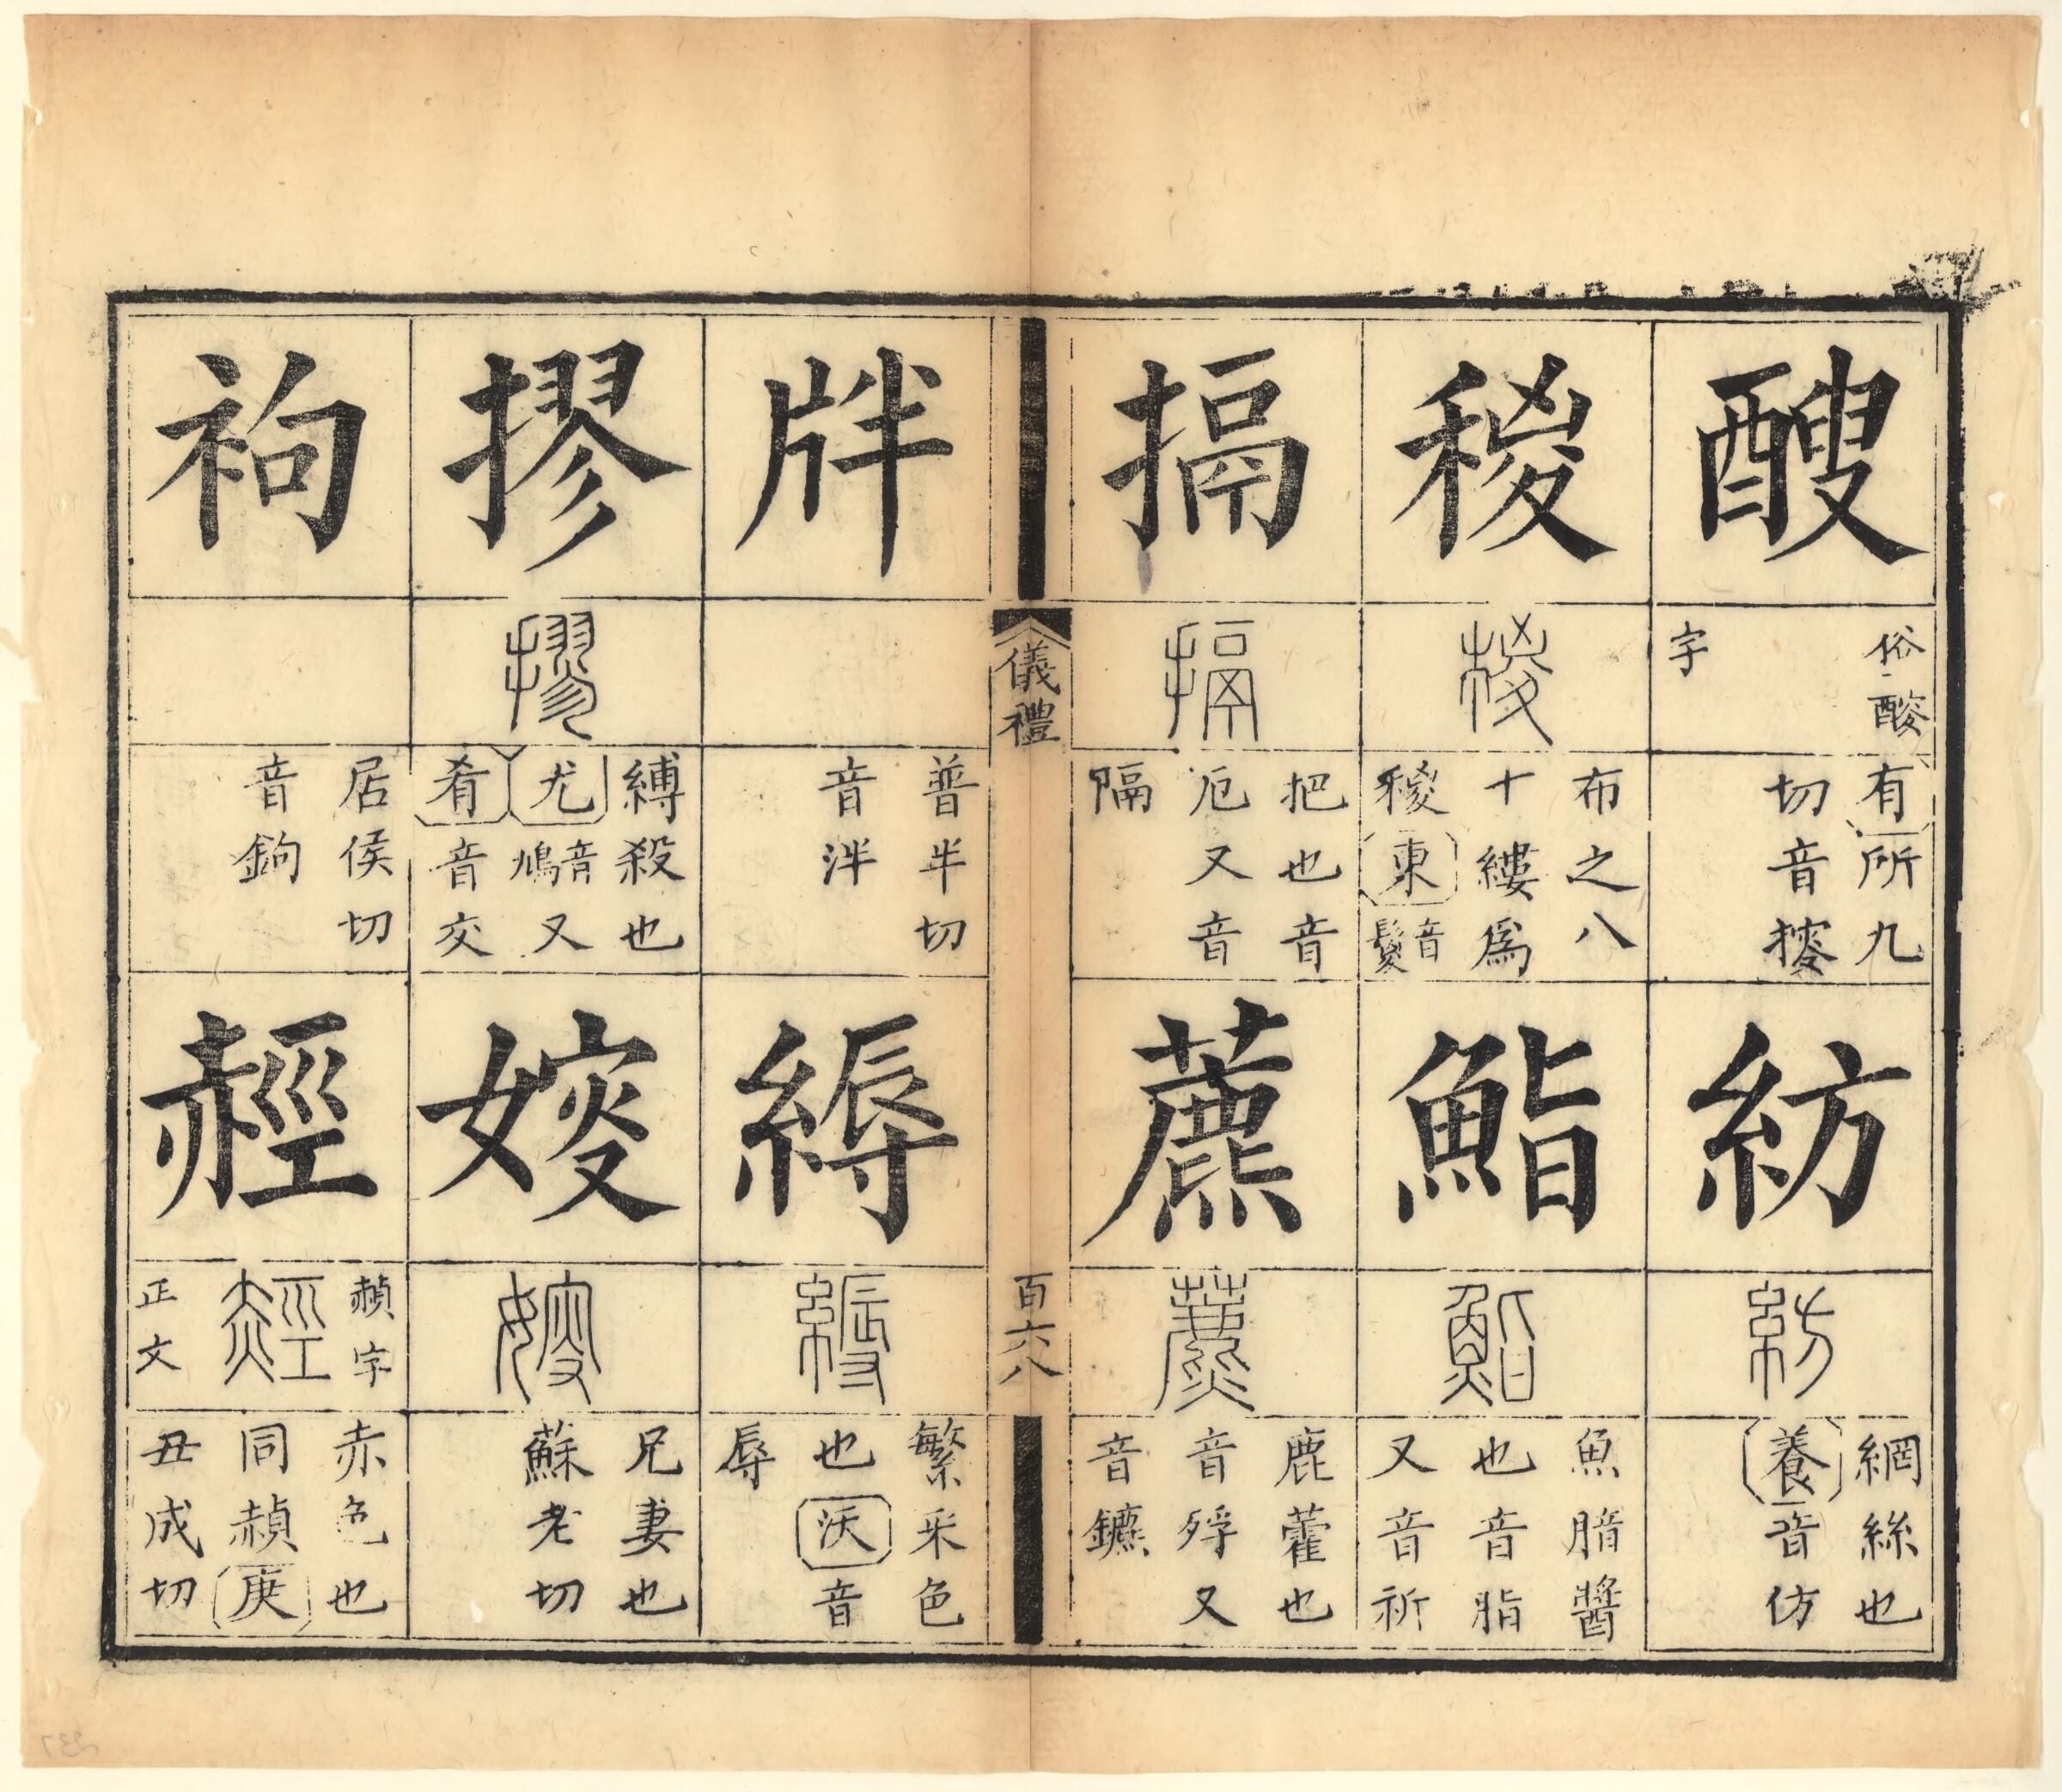 醙
俗
字
有所九
切音
紡
紡
網絲也
養音仿
稯
稯
布之八
十縷爲
稯東音鬉
鮨
鮨
魚腤醬
也音脂
又音祈
搹
搹
把也音
厄又音
隔
藨
藨
鹿藿也
音殍又
音鑣
儀禮
百六八
牉
普半切
音泮
縟
縟
繁采色
也沃音
辱
摎
摎
縛殺也
尤音鳩又
肴音交
㛮
㛮
兄妻也
蘇老切
袧
居侯切
音鉤
䞓
赬字
䞓
正文
赤色也
同赬庚
丑成切